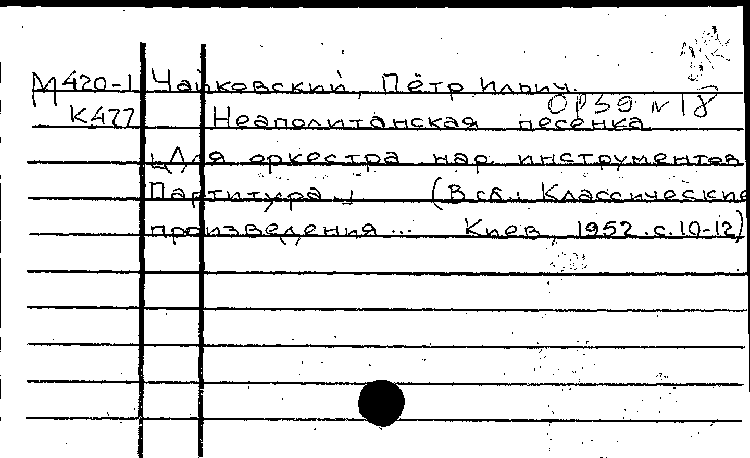 М420-1 Чайковский, Пётр Ильич.
ОРЗО № 18
К477 Неаполитанская песенка
[Для оркестра нар. инструментов
Партитура.] (В сб.: Классические
произведения... Киев, 1952. с. 10-12)